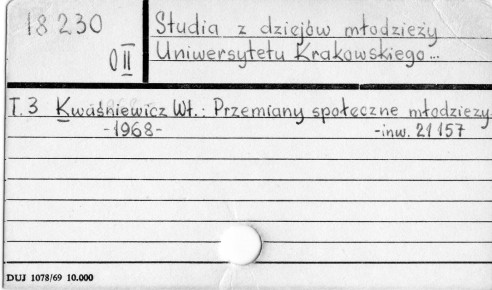 18 230
0 II
Studia z dziejów młodzieży
Uniwersytetu Krakowskiego...
T. 3 Kwaśniewicz Wł.: Przemiany społeczne młodzieży.
-1968- -inw. 21157
DUJ 1078/69 10.000